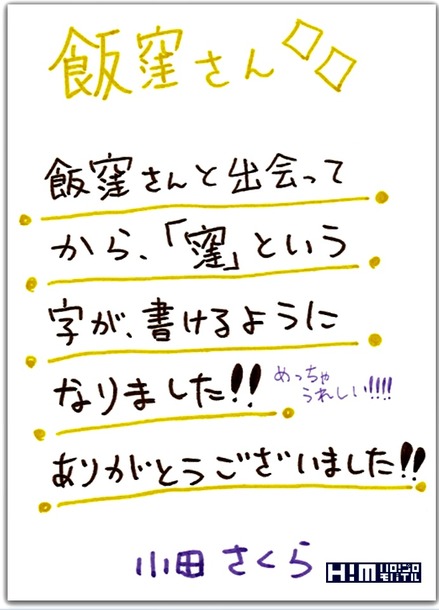 飯窪さん
飯窪さんと出会って
から、「窪」という
字が、書けるように
なりました!!
めっちゃ
うれしい!!!!
ありがとうございました!!
小田さくら
H!M ハロ!プロ
モバイル